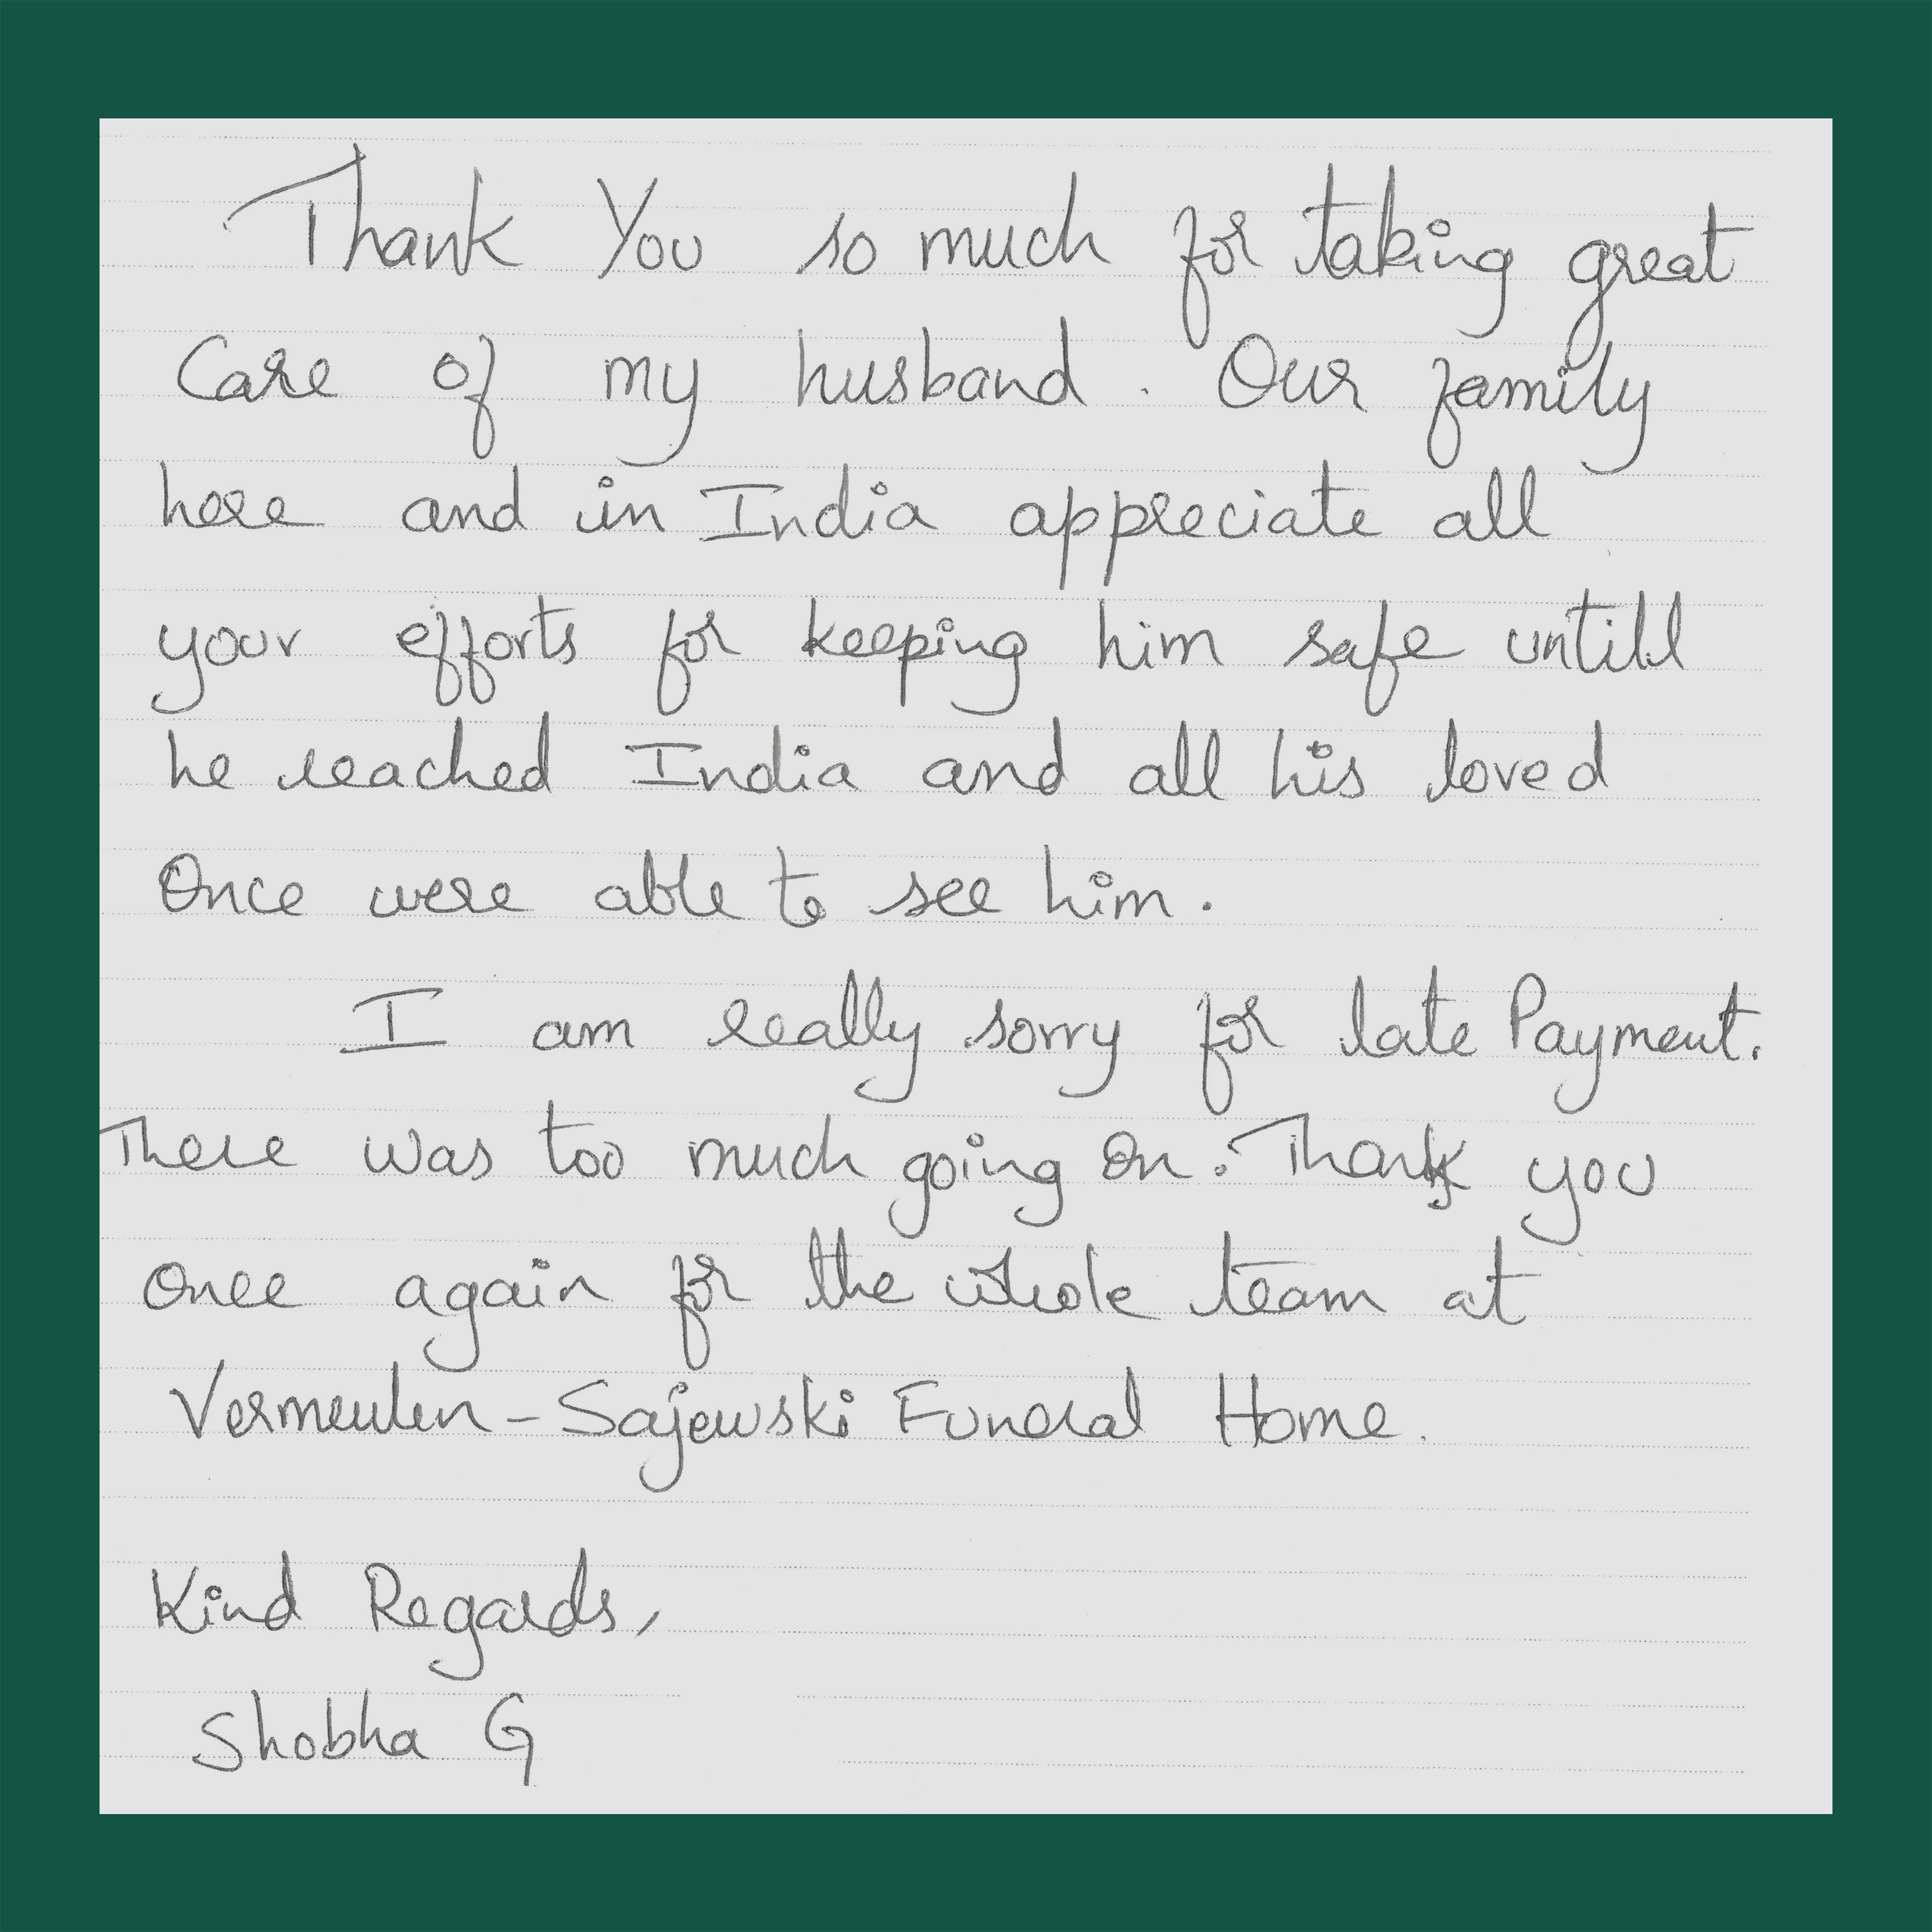 Thank You so much for taking great
Care of my husband. Our family
here and in India appreciate all
your efforts for keeping him safe untill
he reached India and all his loved
Once were able to see him.
I am really sorry for late Payment.
There was too much going on. Thank you
Once again for the whole team at
Vermeulen-Sajewski Funeral Home.
Kind Regards,
Shobha G